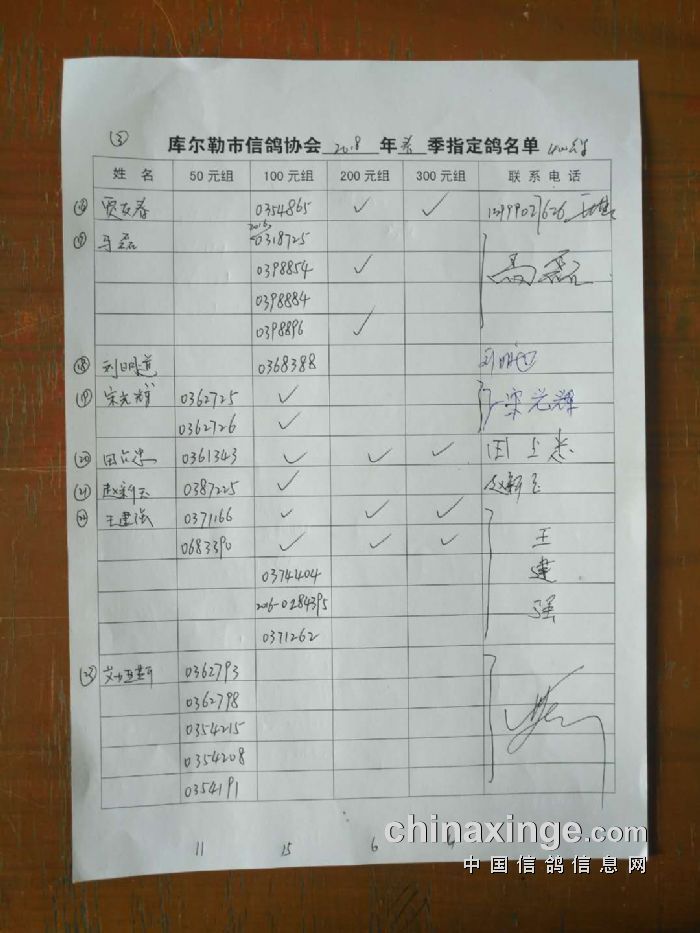 ③
库尔勒市信鸽协会 2018 年 春 季指定鸽名单
姓 名 50元组 100元组 200元组 300元组 联系电话
0354865 ✓ ✓
⑰ 马磊 2016 0318725 马磊
0398854 ✓
0398884
0398896 ✓
⑱ 刘明道 0368388 刘明道
⑲ 宋光辉 0362725 ✓ 宋光辉
0362726 ✓
⑳ 田占忠 0361343 ✓ ✓ ✓
㉑ 赵新玉 0387225 ✓ 赵新玉
㉒ 王建强 0371166 ✓ ✓ ✓ 王建强
0683390 ✓ ✓ ✓
0374404
2016-0284395
0371262
㉓ 0362793
0362798
0354215
0354208
0354191
11 15 6
chinaxinge.com
中国信鸽信息网